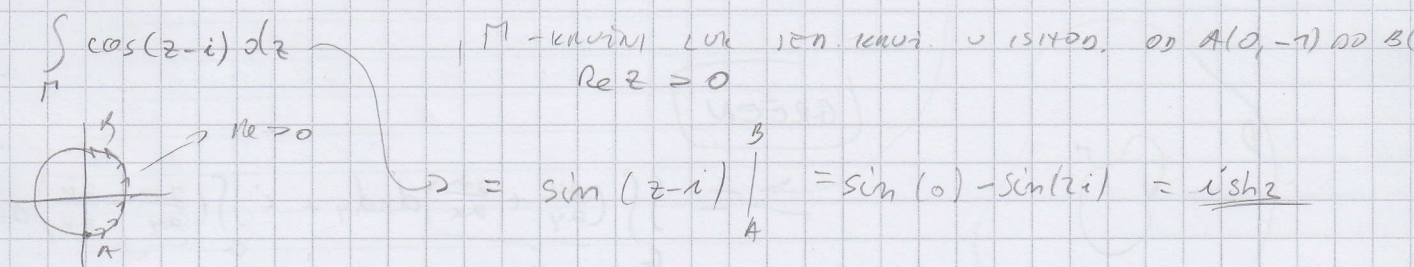 ∫_Γ cos(z-i) dz , Γ - KRUŽNI LUK JED. KRUŽ. U ISHOD. OD A(0,-1) DO B(
Re z > 0
B Re > 0
= sin (z-i) |_A^B = sin (0) - sin(2i) = i sh2
A